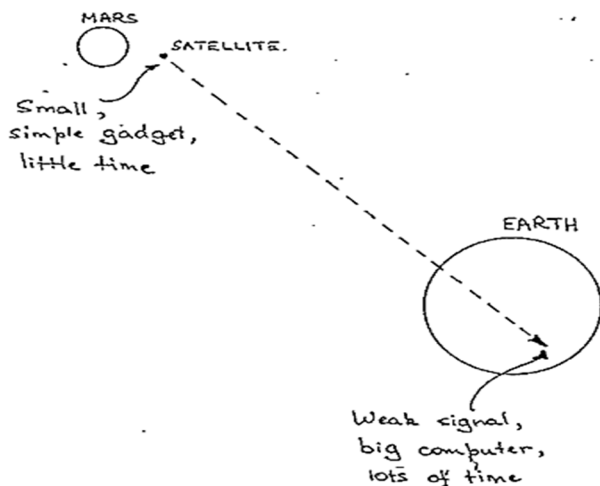 MARS
SATELLITE.
Small,
simple gadget,
little time
EARTH
Weak signal,
big computer,
lots of time